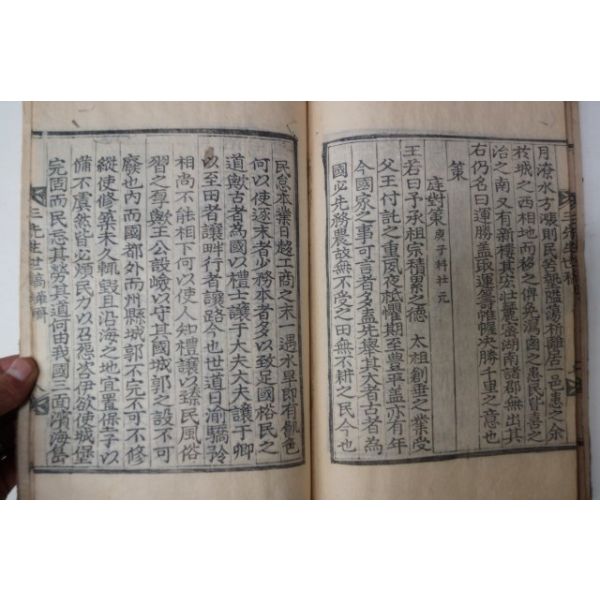 月潦水方漲則民苦墊隘蕩析離居一邑患之余
於城之西相地而移之俾免瀉鹵之患民皆喜之
治之南又有新樓其宏壯麗密湖南諸郡無出其
右仍名曰運勝盖取運籌帷幄決勝千里之意也
策
庭對策 庚子科壯元
王若曰予承祖宗積累之德 太祖創垂之業受
父王付託之重夙夜祗懼期至豊平盖亦有年
今國家之事可言者多盍先擧其大者古者爲
國必先務農故無不受之田無不耕之民今也
三先生世稿
民怠本業日趨工商之末一遇水旱即有飢色
何以使逐末者少務本者多以致足國裕民之
道歟古者爲國以禮士讓于大夫大夫讓于卿
以至田者讓畔行者讓路今也世道日渝驕矜
相尚不能相下何以使人知禮讓以臻民風俗
習之厚歟王公設險以守其國城郭之設不可
廢也內而國都外而州縣城郭不完不可不修
縱使修築未久輒毀且沿海之地宜置保子以
備不虞然皆必煩民力以召怨咨伊欲使城堡
完固而民忘其勞其道何由我國三面濱海島
三先生世稿